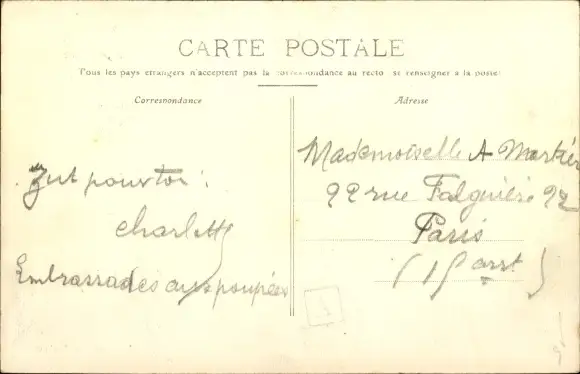 CARTE POSTALE
Tous les pays étrangers n'acceptent pas la correspondance au recto se renseigner à la poste
Correspondance
Zut pour toi :
Charlotte
Embrassades aux poupées
Adresse
Mademoiselle A
92 rue Falguière 92
Paris
(15 arrt)